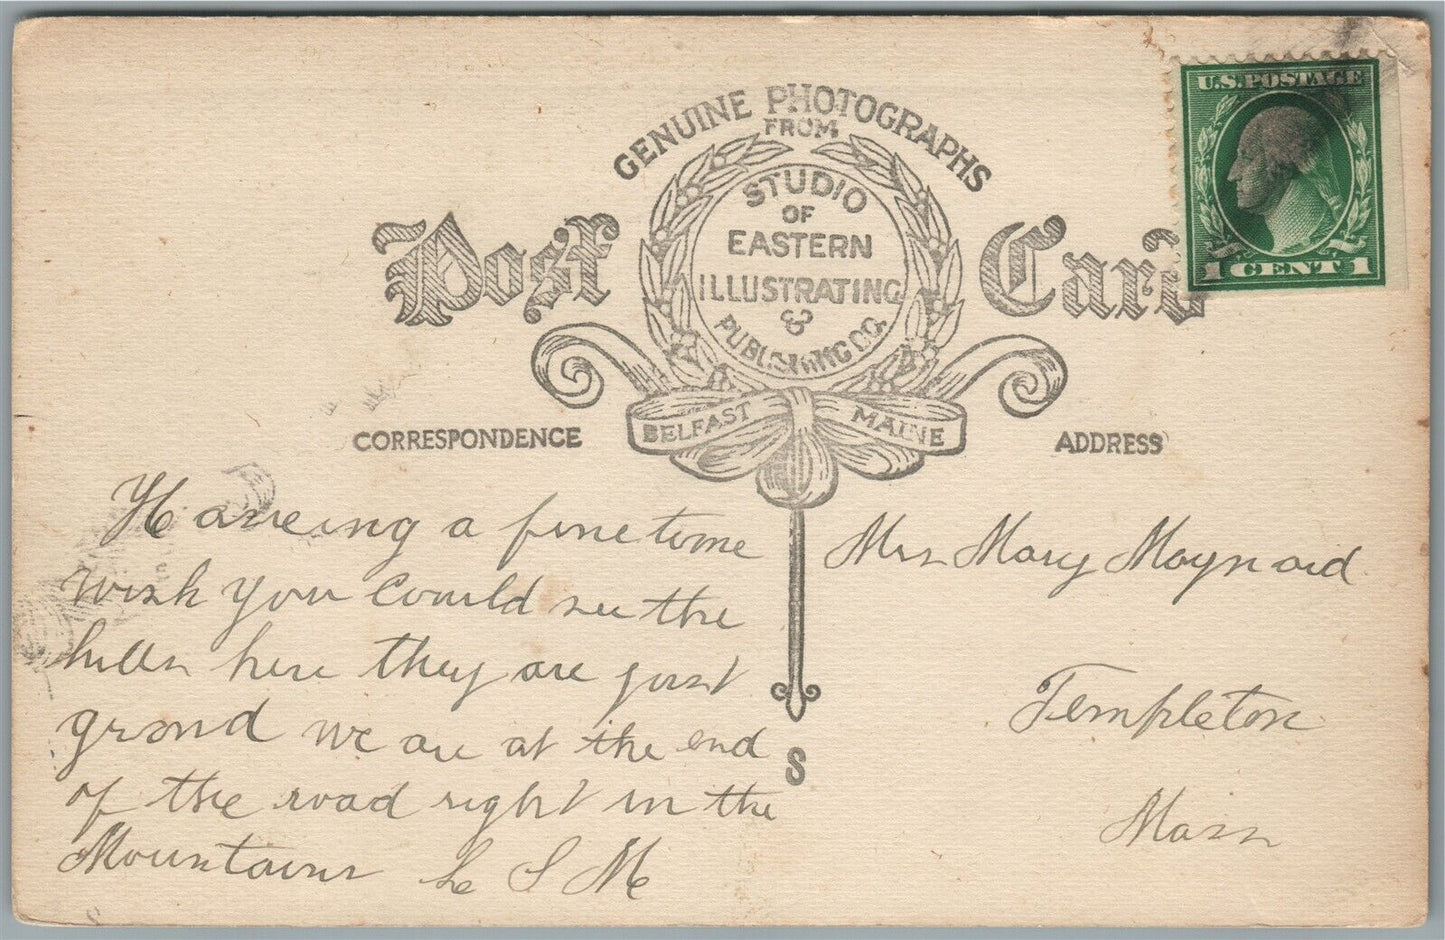 GENUINE PHOTOGRAPHS
FROM
STUDIO
OF
EASTERN
ILLUSTRATING
&
PUBLISHING CO.
BELFAST MAINE
Post Card
U.S. POSTAGE
1 CENT 1
CORRESPONDENCE
ADDRESS
Haveing a fine time
wish you could see the
hills here they are just
grand we are at the end
of the road right in the
Mountains L S M
Mrs Mary Maynard
Templeton
Mass
S